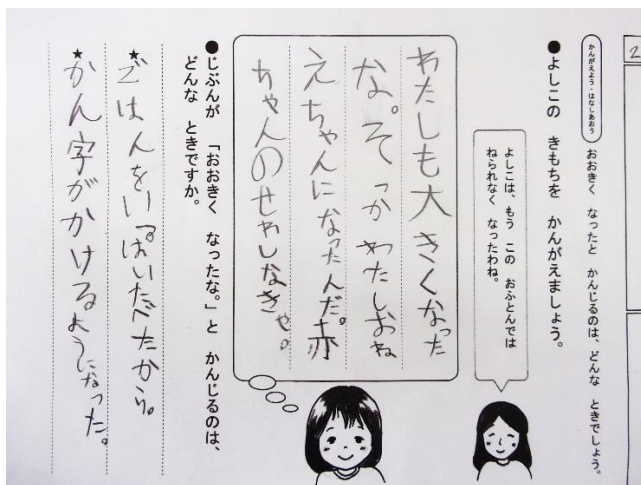 2
かんがえよう・はなしあおう
おおきく なったと かんじるのは、どんな ときでしょう。
●よしこの きもちを かんがえましょう。
よしこは、もう この おふとんでは
ねられなく なったわね。
わたしも大きくなった
な。そっかわたしおね
えちゃんになったんだ。赤
ちゃんのせわしなきゃ。
●じぶんが 「おおきく なったな。」と かんじるのは、
どんな ときですか。
★ごはんをいっぱいたべたから。
★かん字がかけるようになった。